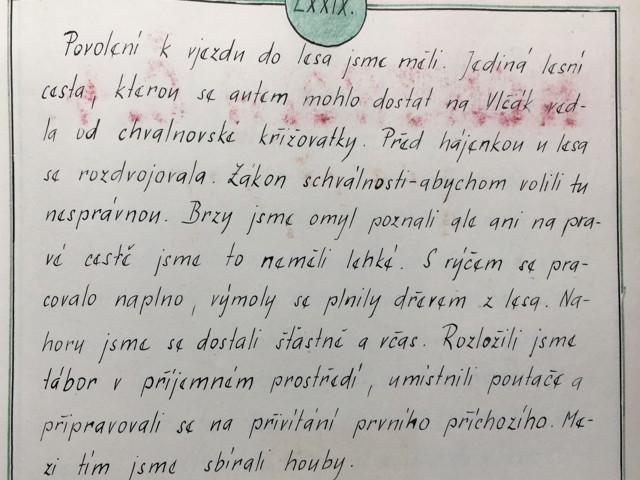 LXXIX.
Povolení k vjezdu do lesa jsme měli. Jediná lesní
cesta, kterou se autem mohlo dostat na Vlčák ved-
la od chválnovské křižovatky. Před hájenkou u lesa
se rozdvojovala. Zákon schválnosti-abychom volili tu
nesprávnou. Brzy jsme omyl poznali ale ani na pra-
vé cestě jsme to neměli lehké. S rýčem se pra-
covalo naplno, výmoly se plnily dřevem z lesa. Na-
horu jsme se dostali šťastně a včas. Rozložili jsme
tábor v příjemném prostředí, umístnili poutače a
připravovali se na přivítání prvního příchozího. Me-
zi tím jsme sbírali houby.